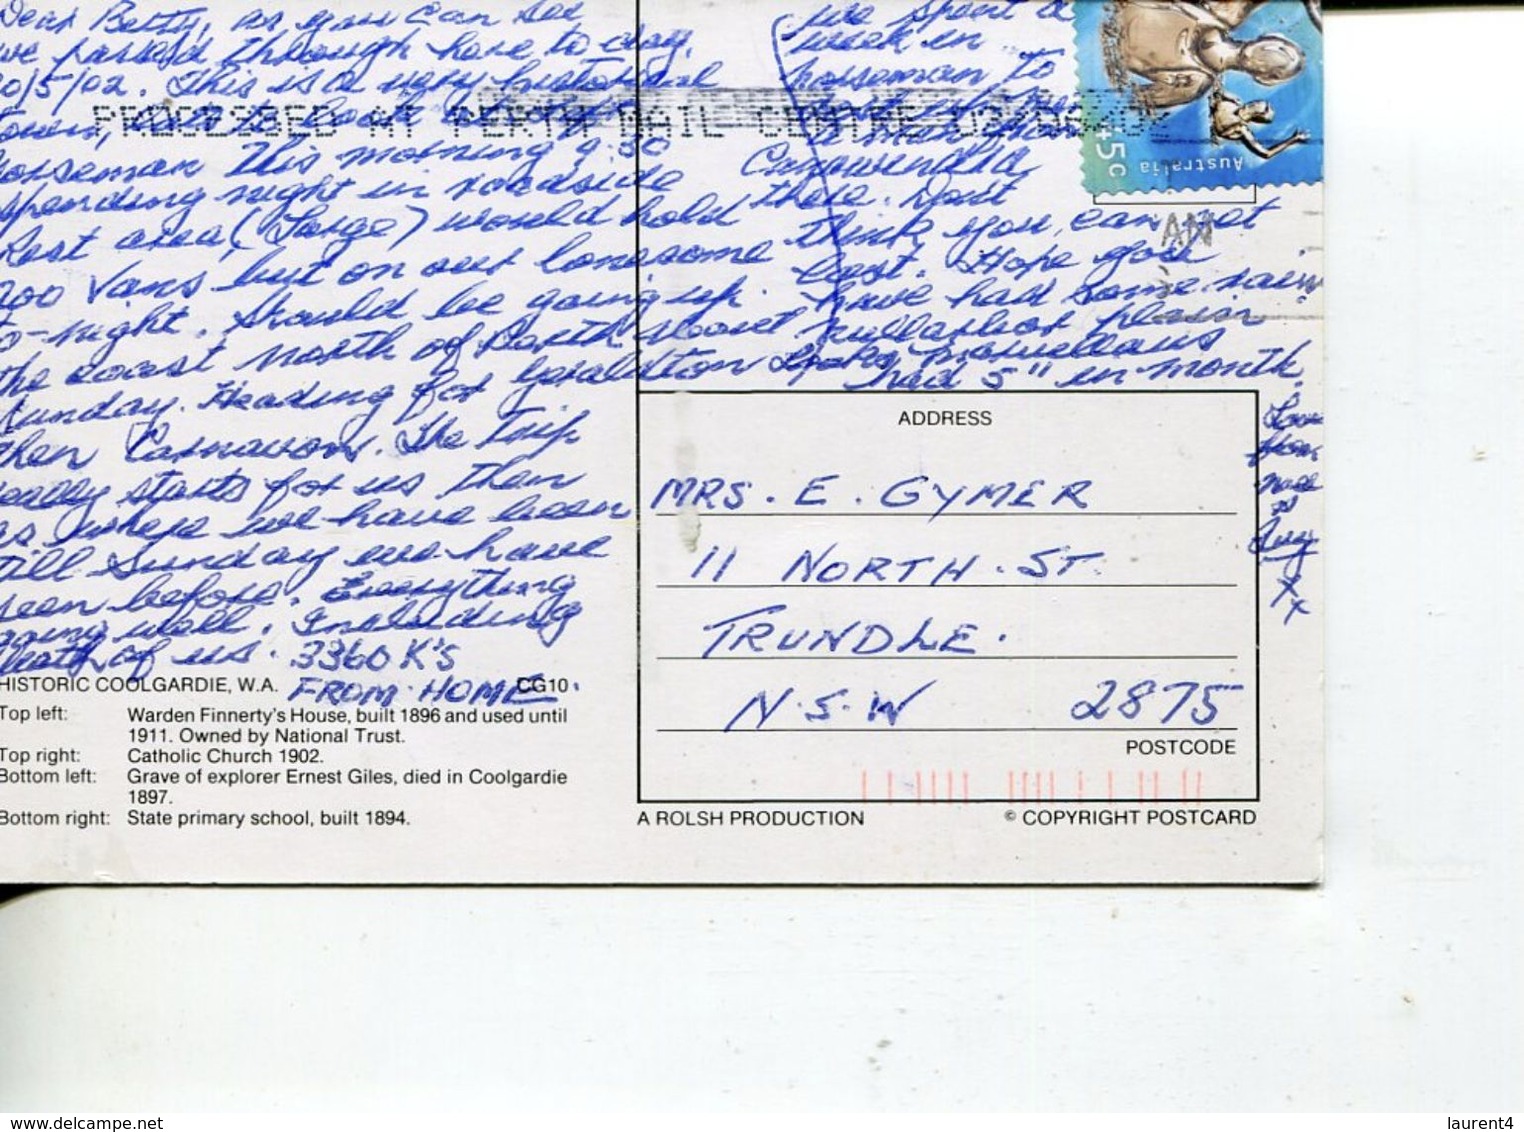 Dear Betty, as you can see
we passed through here to-day,
0/5/02. This is a very historical
town,
orseman this morning 9.30
spending night in roadside
Rest area, (Large) would hold
200 Vans, but on our lonesome
to-night. Should be going up
the coast north of Perth about
Sunday. Heading for Geraldton
then Carnavon. The trip
really starts for us then
as where we have been
till Sunday we have
seen before. Everything
going well. Including
both of us. 3360 K's
FROM HOME.
we spent a
week in
norseman to
Canowindra
there. Dont
think you can not
beat. Hope you
have had some rain
nullarbor plain
Looks marvellous
had 5" in month.
Love
from
&
xxx
PROCESSED AT PERTH MAIL CENTRE
45c
Australia
AN
ADDRESS
MRS. E. GYMER
11 NORTH. ST.
TRUNDLE.
N.S.W 2875
POSTCODE
HISTORIC COOLGARDIE, W.A. CG10
Top left: Warden Finnerty's House, built 1896 and used until
1911. Owned by National Trust.
Top right: Catholic Church 1902.
Bottom left: Grave of explorer Ernest Giles, died in Coolgardie
1897.
Bottom right: State primary school, built 1894.
A ROLSH PRODUCTION
© COPYRIGHT POSTCARD
www.delcampe.net
laurent4